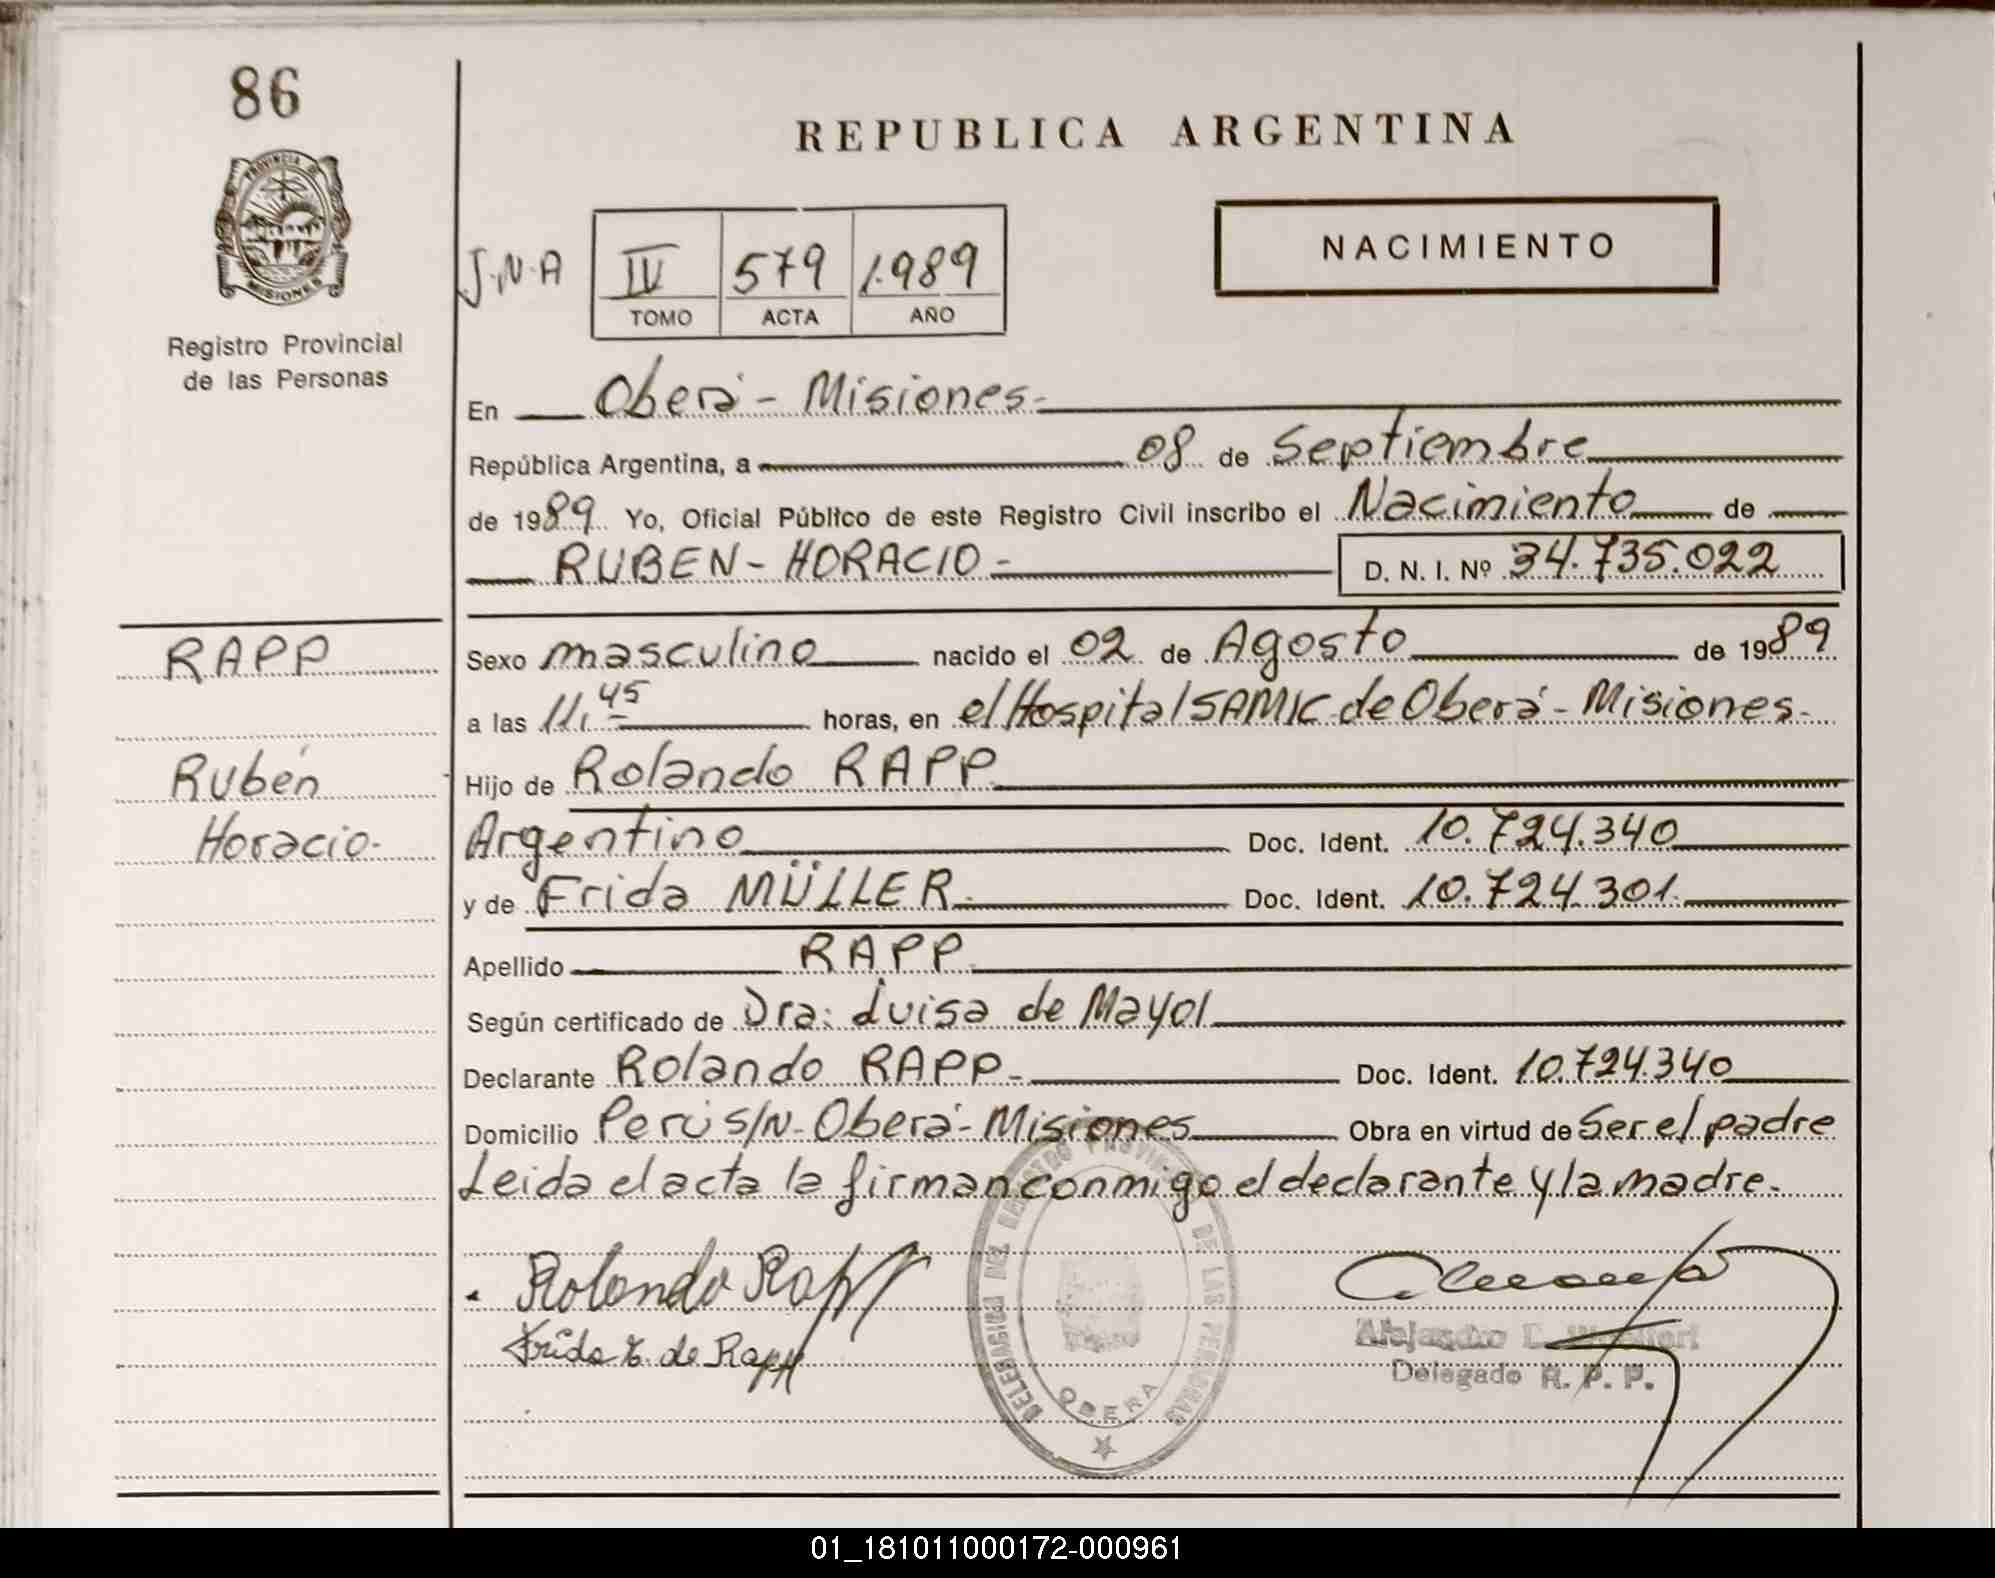 86
PROVINCIA DE
MISIONES
Registro Provincial
de las Personas
REPUBLICA ARGENTINA
NACIMIENTO
J.N.A IV 579 1.989
TOMO ACTA AÑO
En Oberá - Misiones.-
República Argentina, a 08 de Septiembre
de 1989 Yo, Oficial Público de este Registro Civil inscribo el Nacimiento de
RUBEN - HORACIO - D. N. I. Nº 34.735.022
RAPP
Rubén
Horacio.
Sexo masculino nacido el 02 de Agosto de 1989
a las 11.45 horas, en el Hospital SAMIC de Oberá - Misiones.-
Hijo de Rolando RAPP
Argentino Doc. Ident. 10.724.340
y de Frida MÜLLER.- Doc. Ident. 10.724.301.
Apellido RAPP
Según certificado de Dra: Luisa de Mayol
Declarante Rolando RAPP - Doc. Ident. 10.724.340
Domicilio Perú S/N - Oberá - Misiones Obra en virtud de Ser el padre
Leida el acta la firman conmigo el declarante y la madre.-
Rolando Rapp
Frida de Rapp
DELEGACION DEL REGISTRO PROVINCIAL DE LAS PERSONAS
OBERA
Alejandro
Delegado R. P. P.
01_181011000172-000961